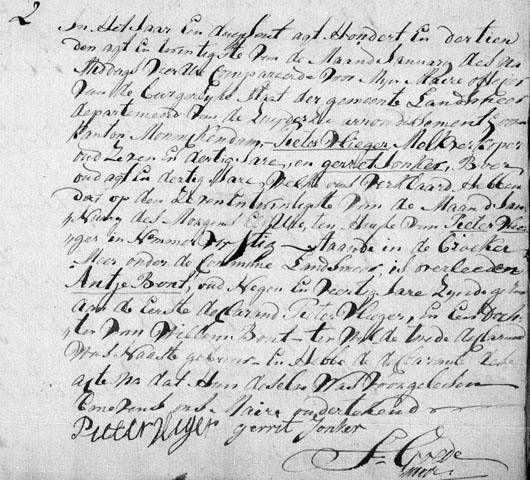 2
In Het Jaar Een duijsent agt Hondert En dertien
den agt En twintigste van de Maand Januarij des na
Middags vier Ure Compareerde voor Mijn Maire officier
van de Burgerlijke Staat der gemeente Landsmeer
departement van de Zuijderzee arrondissement Hoorn
kanton Monnikendam, Pieter Vlieger Melkverkoper
oud Zeven En dertig Jare, en gerrit Jonker, Boer
oud agt En dertig Jare, welke ons verklaard hebben
dat op den Zeven En twintigste van de Maand Jan
uarij des Morgens Uure, ten Huijse van Pieter Vlie
ger en Nommer Staande in de
Meer onder de Commune Landsmeer, is overleeden
Antje Bont, oud Negen En Veertig Jare Zijnde
aan de Eerste declarand Pieter Vlieger, en Een Doch
ter van Willem Bont - terwijl de twede declarand
was Naaste gebuur - En Hebbe de declarand deze
acte na dat Hun deselve was voorgelesen
Emevens ons Maire ondertekend
Pieter Vlieger gerrit Jonker
maire